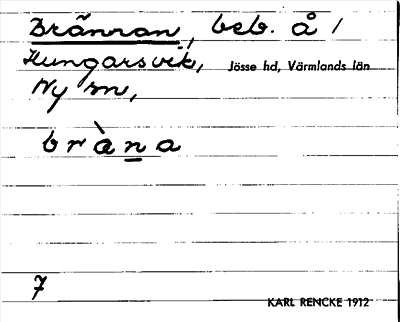 Brännan, beb. å /
Hungarsvik, Jösse hd, Värmlands län
Ny sn,
bràna
7
KARL RENCKE 1912